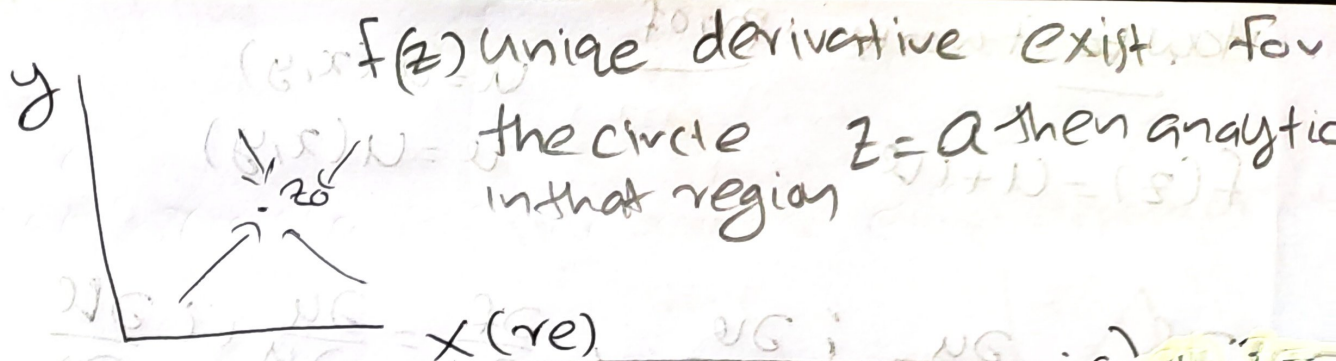 f(z) uniqe derivative exist. for
y
the circle z = a then anaytic
z0
in that region
x (re)